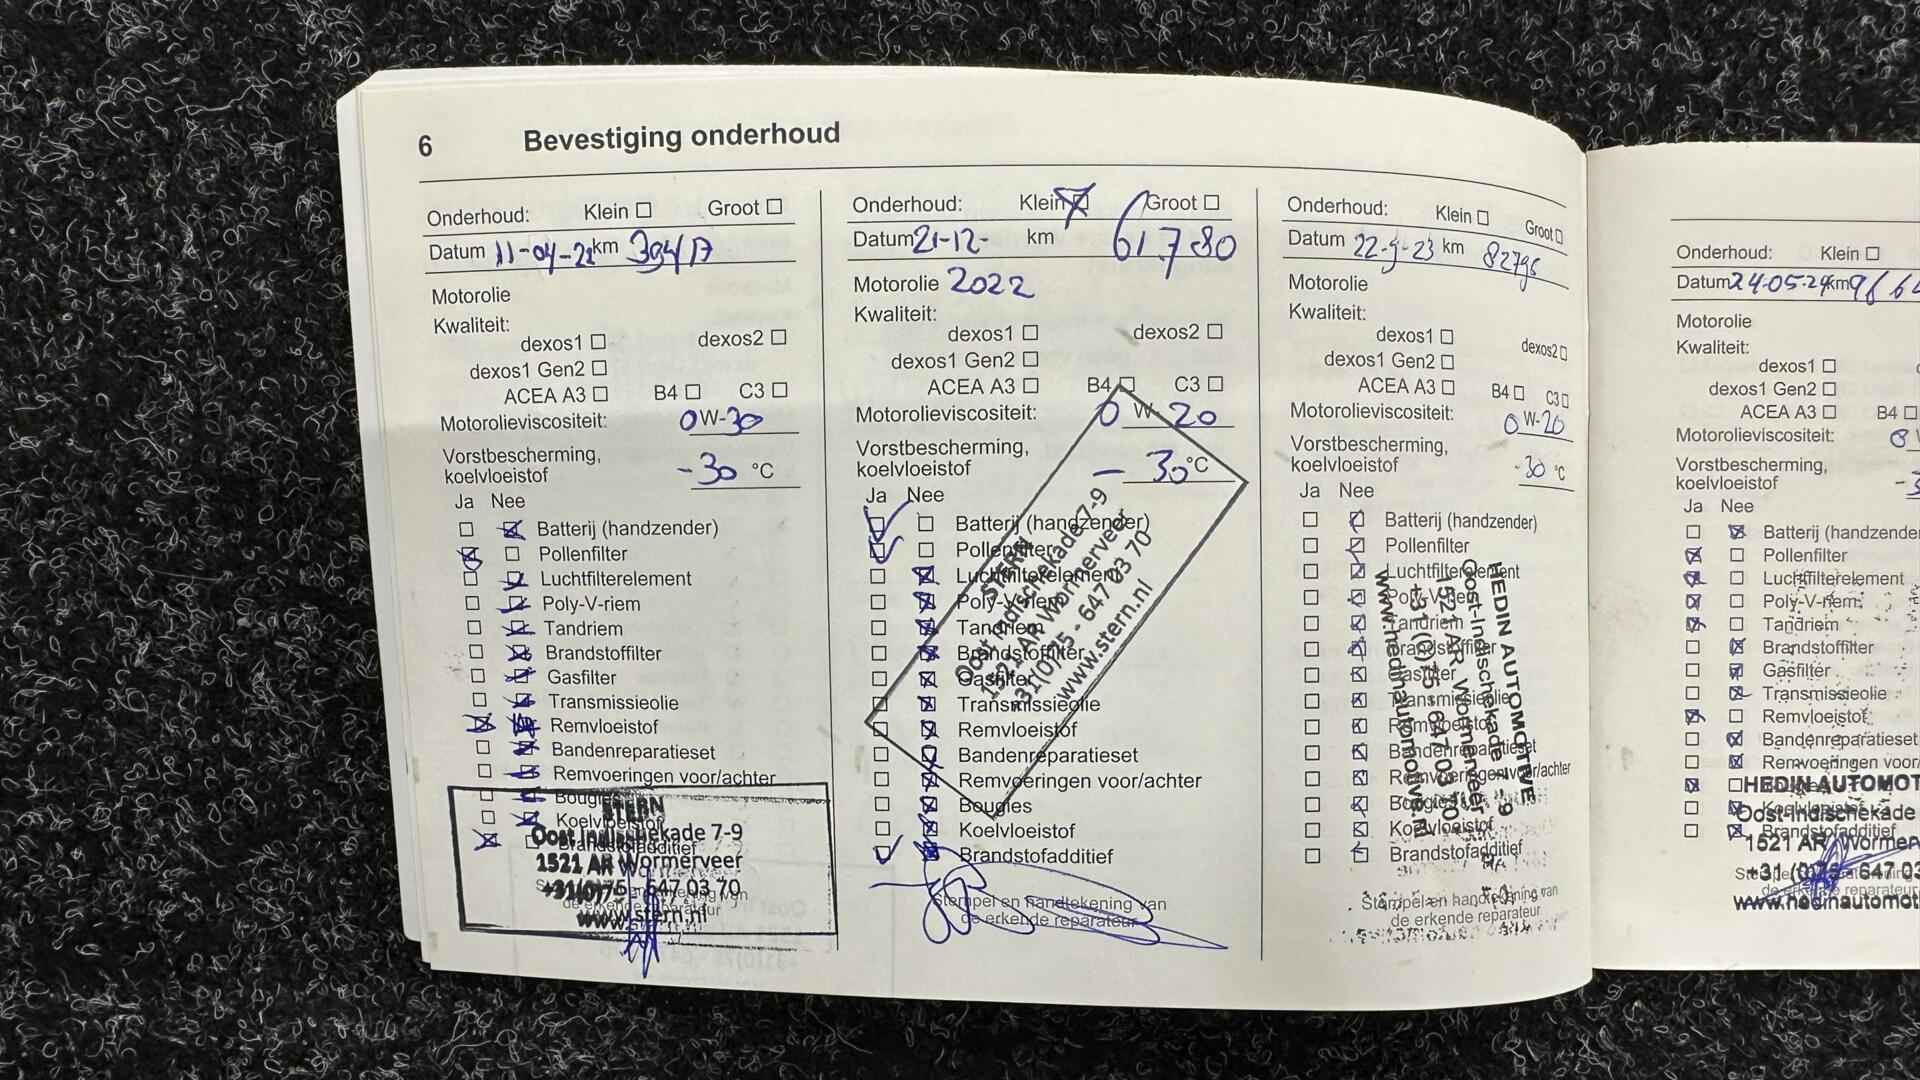 6 Bevestiging onderhoud
Onderhoud: Klein Groot
Datum 11-04-22 km 39417
Motorolie
Kwaliteit:
dexos1 dexos2
dexos1 Gen2
ACEA A3 B4 C3
Motorolieviscositeit: 0 W-30
Vorstbescherming,
koelvloeistof -30 °C
Ja Nee
Batterij (handzender)
Pollenfilter
Luchtfilterelement
Poly-V-riem
Tandriem
Brandstoffilter
Gasfilter
Transmissieolie
Remvloeistof
Bandenreparatieset
Remvoeringen voor/achter
Bougies
Koelvloeistof
Brandstofadditief
STERN
Oost Indischekade 7-9
1521 AR Wormerveer
+31(0)75 - 647 03 70
www.stern.nl
Onderhoud: Klein Groot
Datum 21-12- km 61.780
Motorolie 2022
Kwaliteit:
dexos1 dexos2
dexos1 Gen2
ACEA A3 B4 C3
Motorolieviscositeit: 0 W-20
Vorstbescherming,
koelvloeistof -30 °C
Ja Nee
Batterij (handzender)
Pollenfilter
Luchtfilterelement
Poly-V-riem
Tandriem
Brandstoffilter
Gasfilter
Transmissieolie
Remvloeistof
Bandenreparatieset
Remvoeringen voor/achter
Bougies
Koelvloeistof
Brandstofadditief
Stempel en handtekening van
de erkende reparateur
STERN
Oost Indischekade 7-9
1521 AR Wormerveer
+31(0)75 - 647 03 70
www.stern.nl
Onderhoud: Klein Groot
Datum 22-9-23 km 82795
Motorolie
Kwaliteit:
dexos1 dexos2
dexos1 Gen2
ACEA A3 B4 C3
Motorolieviscositeit: 0 W-20
Vorstbescherming,
koelvloeistof -30 °C
Ja Nee
Batterij (handzender)
Pollenfilter
Luchtfilterelement
Poly-V-riem
Tandriem
Brandstoffilter
Gasfilter
Transmissieolie
Remvloeistof
Bandenreparatieset
Remvoeringen voor/achter
Bougies
Koelvloeistof
Brandstofadditief
Stempel en handtekening van
de erkende reparateur
HEDIN AUTOMOTIVE
Oost-Indischekade 7-9
1521 AR Wormerveer
+31 (0)75 647 03 70
www.hedinautomotive.nl
Onderhoud: Klein
Datum 24-05-24 km
Motorolie
Kwaliteit:
dexos1
dexos1 Gen2
ACEA A3 B4
Motorolieviscositeit: 0
Vorstbescherming,
koelvloeistof
Ja Nee
Batterij (handzender
Pollenfilter
Luchtfilterelement
Poly-V-riem
Tandriem
Brandstoffilter
Gasfilter
Transmissieolie
Remvloeistof
Bandenreparatieset
Remvoeringen voor/
Koelvloeistof
Brandstofadditief
HEDIN AUTOMOT
Oost-Indischekade
1521 AR Wormer
+31 (0)75 647 03
de erkende reparateur
www.hedinautomot